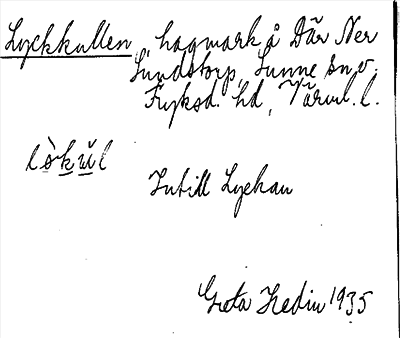 Lyckkullen, hagmark å Där Ner
Sundstorp, Sunne sn. v.
Fryksd. hd, Värml. l.
lòkŭl
Intill Lyckan
Greta Hedin 1935